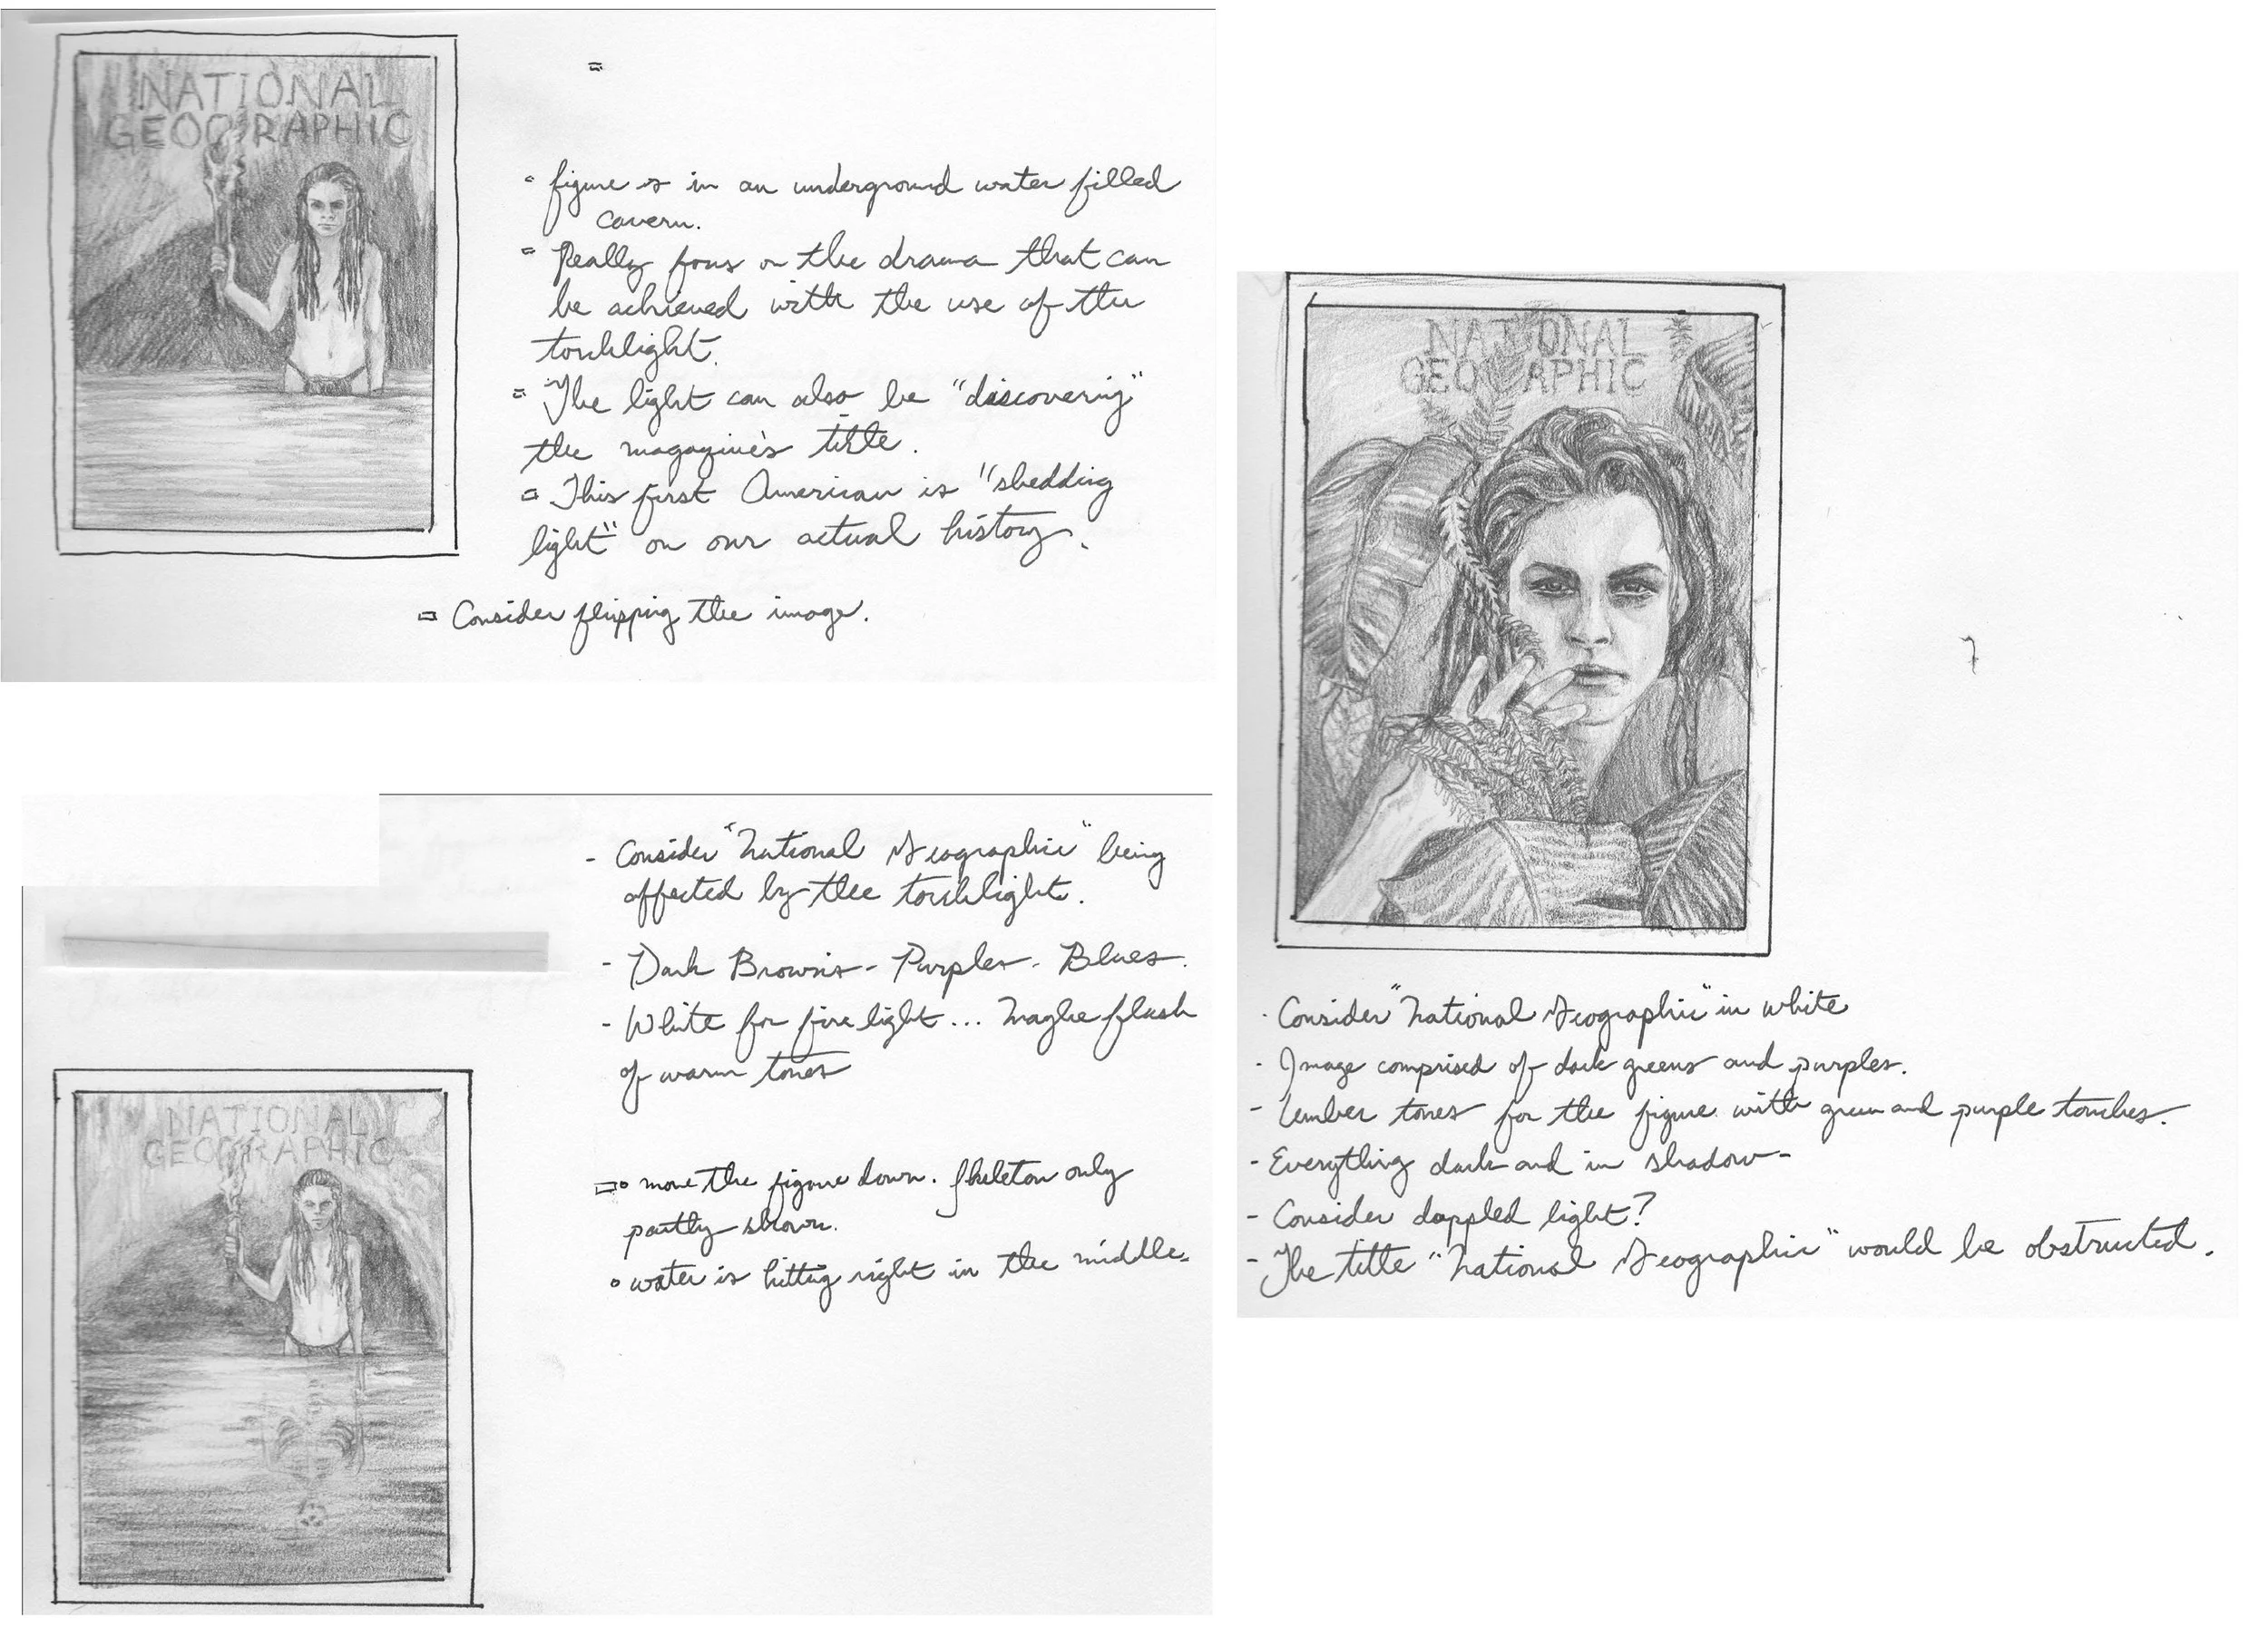 NATIONAL
GEOGRAPHIC
figure is in an underground water filled
cavern.
Really focus on the drama that can
be achieved with the use of the
torchlight.
The light can also be "discovering"
the magazine's title.
This first American is "shedding
light" on our actual history.
Consider flipping the image.
- Consider "National Geographic" being
affected by the torchlight.
- Dark Browns - Purples - Blues.
- White for fire light... Maybe flush
of warm tones
move the figure down. Skeleton only
partly shown.
water is hitting right in the middle.
NATIONAL
GEOGRAPHIC
NATIONAL
GEOGRAPHIC
- Consider "National Geographic" in white
- Image comprised of dark greens and purples.
- Umber tones for the figure with green and purple touches.
- Everything dark and in shadow-
- Consider dappled light?
- The title "National Geographic" would be obstructed.